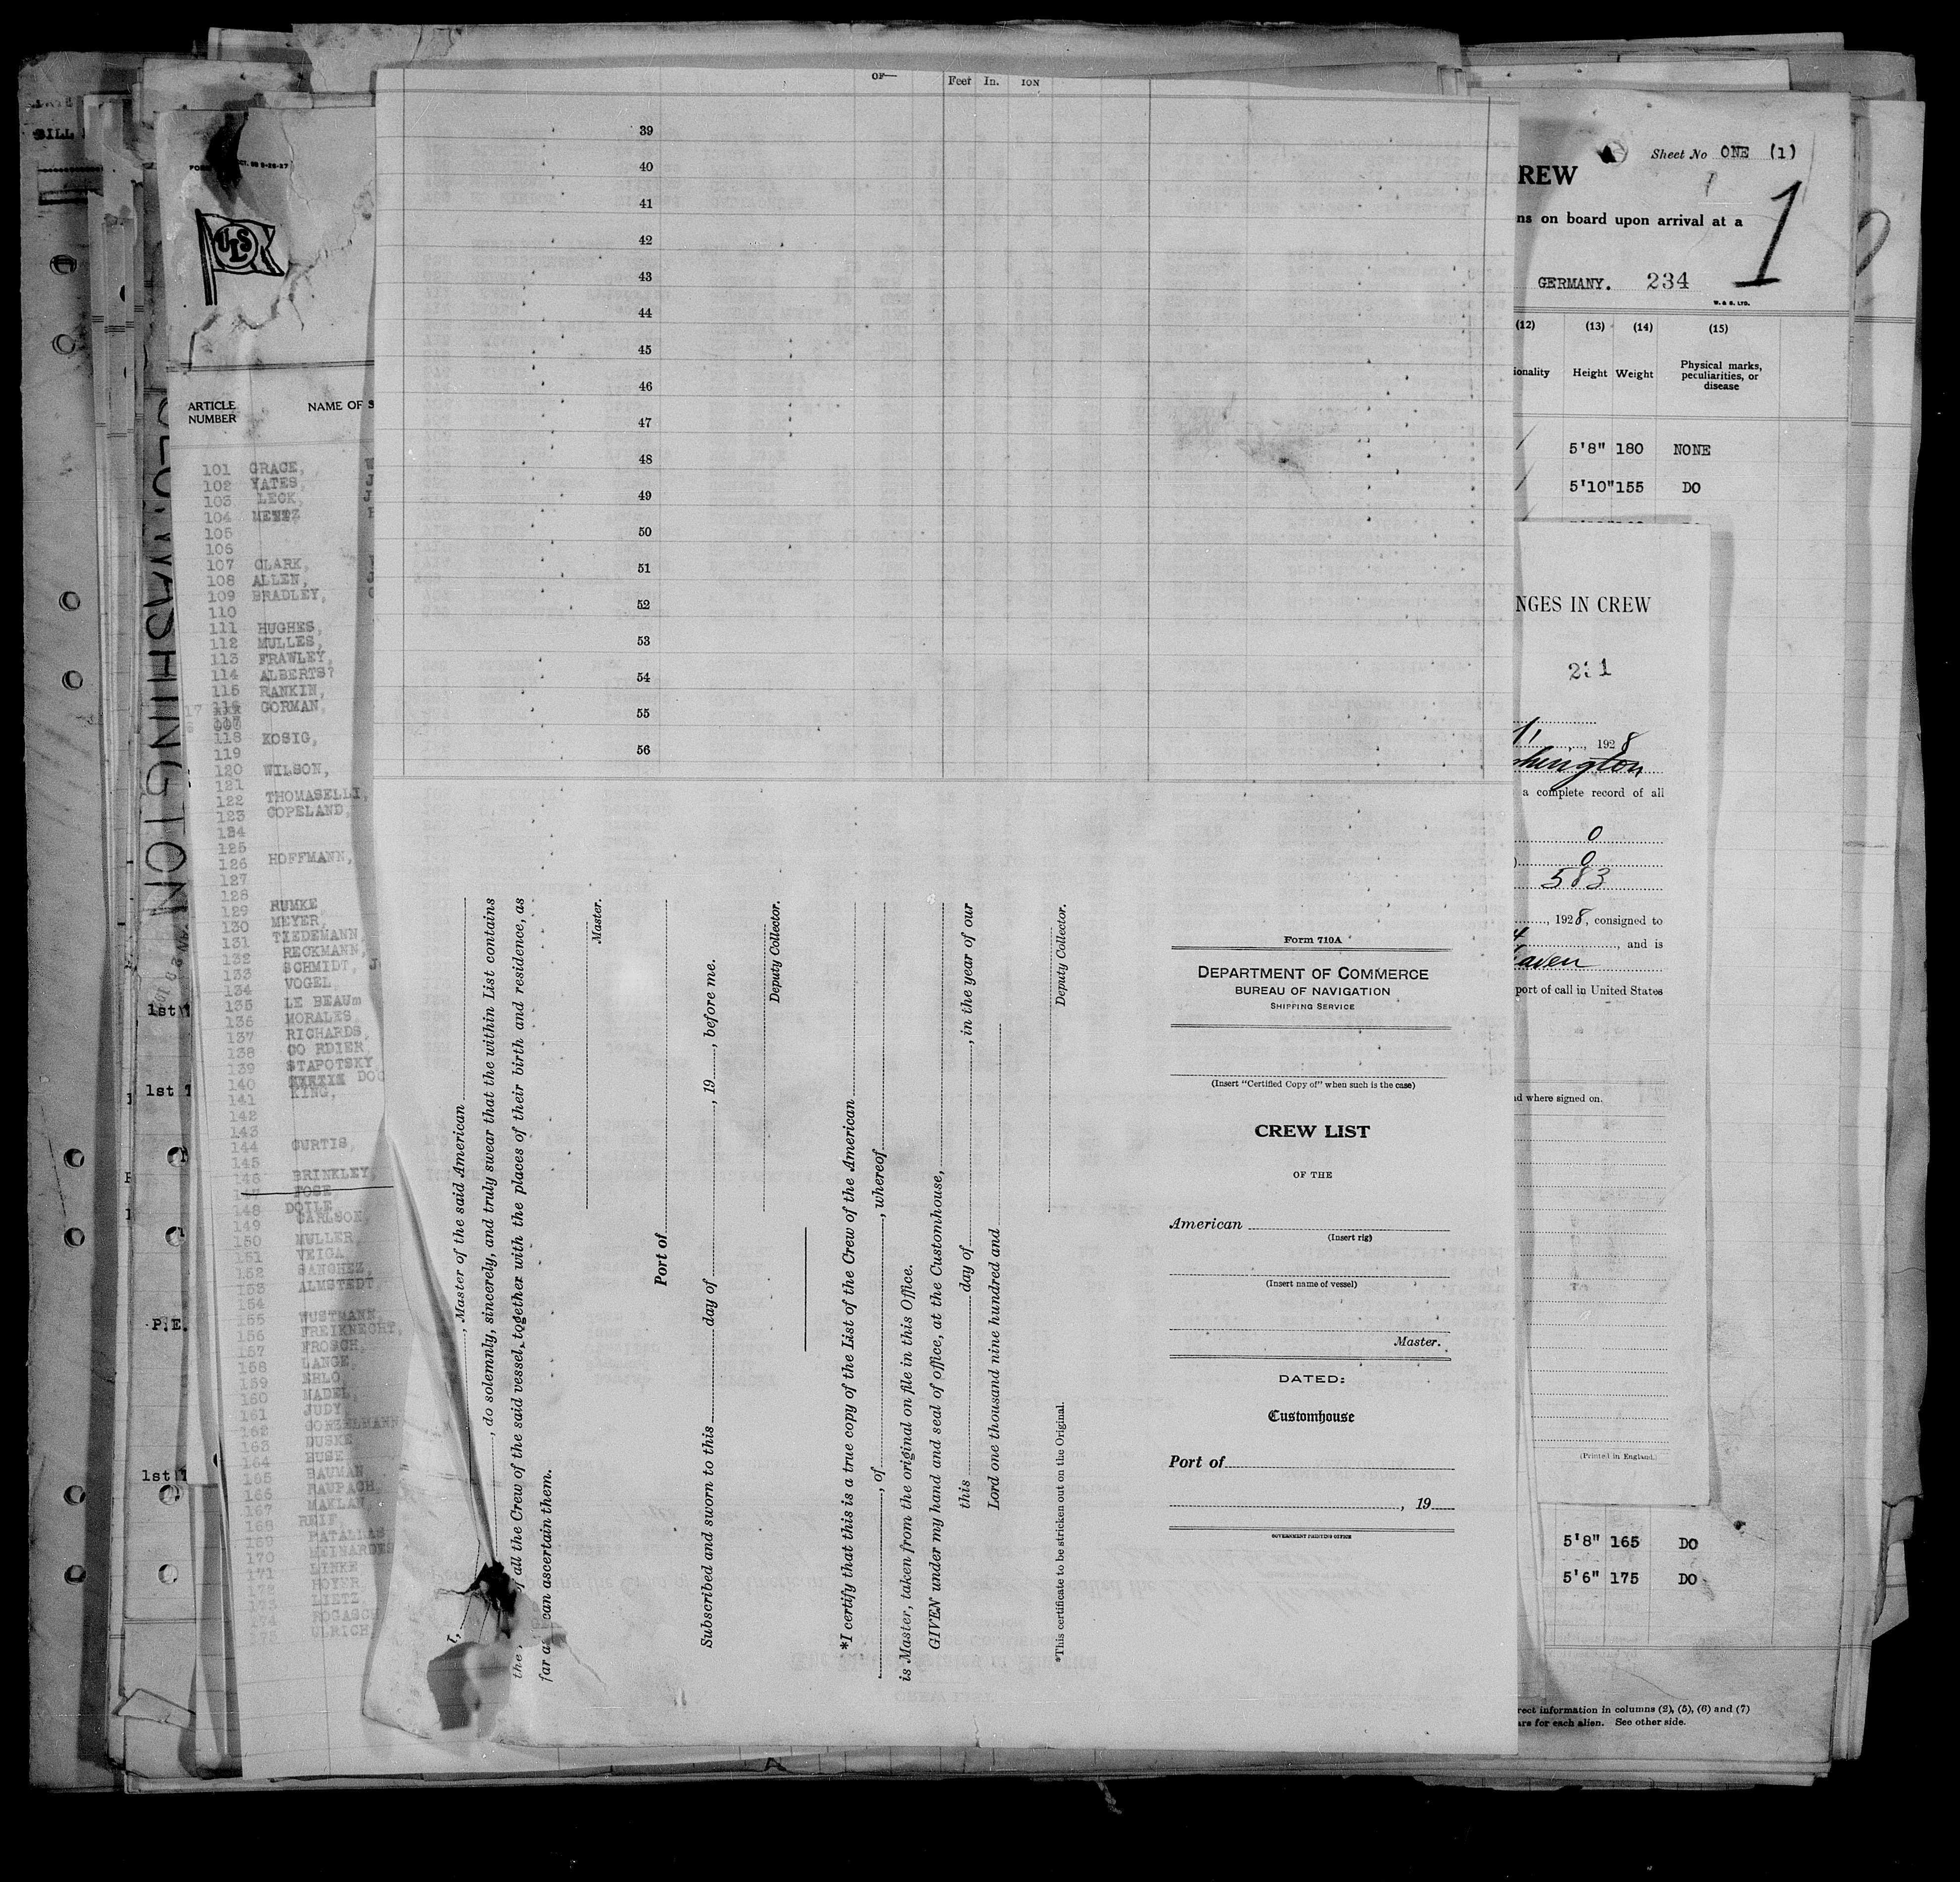 BILL
FORM
8-26-37
ULS
ARTICLE
NUMBER
NAME OF S
101 GRACE,
102 YATES,
103 LECK,
104
105
106
107 CLARK,
108 ALLEN,
109 BRADLEY,
110
111 HUGHES,
112 MULLES,
113 FRAWLEY,
114 ALBERTS?
115 RANKIN,
GORMAN,
118 KOSIG,
119
120 WILSON,
121
122 THOMASELLI,
123 COPELAND,
124
125
126 HOFFMANN,
127
128
129 RUMKE
130 MEYER,
131 TIEDEMANN,
132 RECKMANN,
133 SCHMIDT, J
134 VOGEL
135 LE BEAUm
136 MORALES
137 RICHARDS,
138 CO RDIER
139 STAPOTSKY
140 DOC
141 KING,
142
143
144 CURTIS,
145
146 BRINKLEY,
147 POSE
148 DOYLE,
149 CARLSON,
150 MULLER
151 VEIGA
152 SANCHEZ,
153 ALMSTEDT,
154
155 WUSTMANN,
156 FREIKNECHT,
157 FROSCH,
158 LANGE
159 EHLO
160 NADEL,
161 JUDY
162
163 DUSKE
164 HUSE
165 BAUMAN
166 RAUPACH
167 MAKLAN
168 REIF,
169
170 MEINARDES
171 LINKE
172 HOYER
173 LIETZ
174
175 ULRICH
WASHINGTON
1st
1st
P.E.
1st
OF—
Feet In. ION
39
40
41
42
43
44
45
46
47
48
49
50
51
52
53
54
55
56
I, , Master of the said American
, do solemnly, sincerely, and truly swear that the within List contains
the all the Crew of the said vessel, together with the places of their birth and residence, as
far as can ascertain them.
Master.
Port of
Subscribed and sworn to this day of , 19 , before me.
Deputy Collector.
*I certify that this is a true copy of the List of the Crew of the American
, of , whereof
is Master, taken from the original on file in this Office.
GIVEN under my hand and seal of office, at the Customhouse,
this day of , in the year of our
Lord one thousand nine hundred and
Deputy Collector.
*This certificate to be stricken out on the Original.
Form 710A
DEPARTMENT OF COMMERCE
BUREAU OF NAVIGATION
SHIPPING SERVICE
(Insert "Certified Copy of" when such is the case)
CREW LIST
OF THE
American
(Insert rig)
(Insert name of vessel)
Master.
DATED:
Customhouse
Port of
, 19
GOVERNMENT PRINTING OFFICE
Sheet No ONE (1)
REW
1
ns on board upon arrival at a
GERMANY. 234
W. & S. LTD.
(12) (13) (14) (15)
ionality Height Weight Physical marks,
peculiarities, or
disease
5'8" 180 NONE
5'10" 155 DO
NGES IN CREW
1, 1928
shington
a complete record of all
0
0
583
, 1928, consigned to
, and is
aven
port of call in United States
nd where signed on.
(Printed in England.)
5'8" 165 DO
5'6" 175 DO
rrect information in columns (2), (5), (6) and (7)
ars for each alien. See other side.